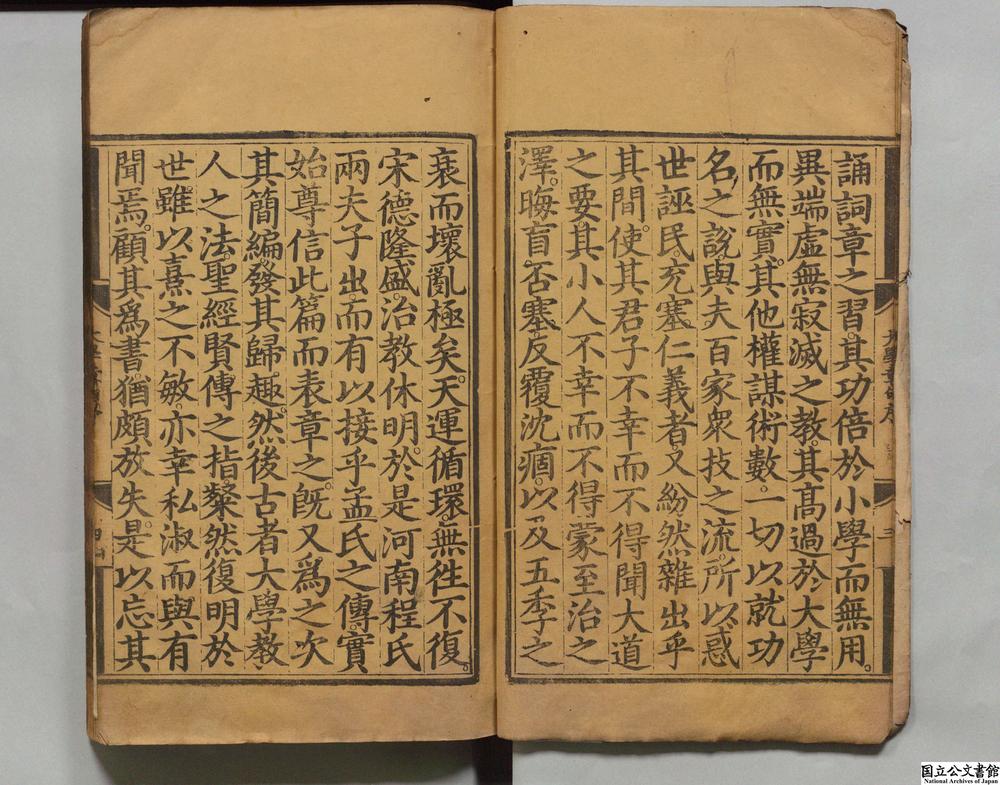 誦詞章之習。其功倍於小學而無用。
異端虛無寂滅之教。其高過於大學
而無實。其他權謀術數。一切以就功
名之說。與夫百家衆技之流。所以惑
世誣民。充塞仁義者。又紛然雜出乎
其間。使其君子不幸而不得聞大道
之要。其小人不幸而不得蒙至治之
澤。晦盲否塞。反覆沈痼。以及五季之
衰而壞亂極矣。天運循環。無徃不復。
宋德隆盛。治教休明。於是河南程氏
兩夫子出。而有以接乎孟氏之傳。實
始尊信此篇而表章之。旣又爲之次
其簡編。發其歸趣。然後古者大學教
人之法。聖經賢傳之指。粲然復明於
世。雖以熹之不敏。亦幸私淑而與有
聞焉。顧其爲書。猶頗放失。是以忘其
三
国立公文書館
National Archives of Japan